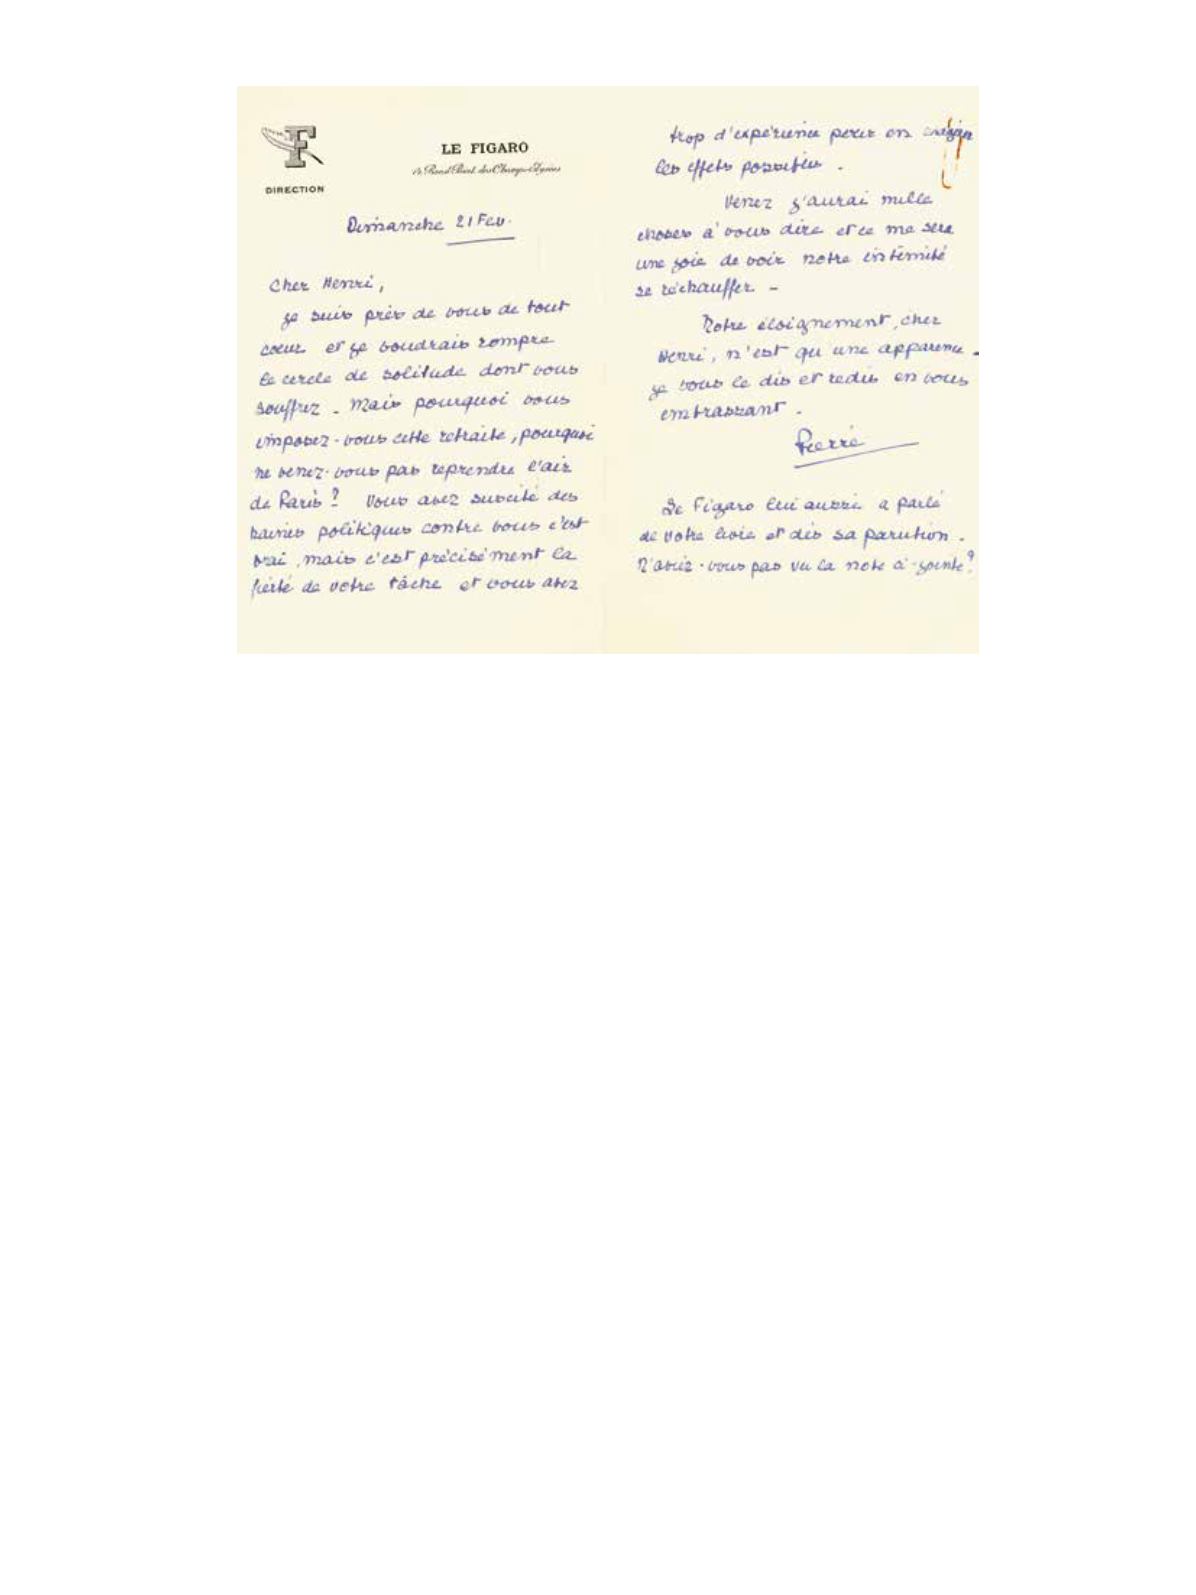 F
DIRECTION
LE FIGARO
14 Rond-Point des Champs-Elysées
Dimanche 21 Fev.
Cher Henri,
je suis près de vous de tout
coeur et je voudrais rompre
le cercle de solitude dont vous
souffrez - Mais pourquoi vous
imposez-vous cette retraite, pourquoi
ne venez-vous pas reprendre l'air
de Paris ? Vous avez suscité des
haines politiques contre vous c'est
vrai, mais c'est précisément la
fierté de votre tâche et vous avez
trop d'expérience pour en
les effets possibles .
Venez j'aurai mille
choses à vous dire et ce me sera
une joie de voir notre intimité
se réchauffer -
Notre éloignement, cher
Henri, n'est qu'une apparence -
je vous le dis et redis en vous
embrassant .
Pierre
Le Figaro lui aussi a parlé
de votre livre et dès sa parution .
N'aviez-vous pas vu la note ci-jointe ?